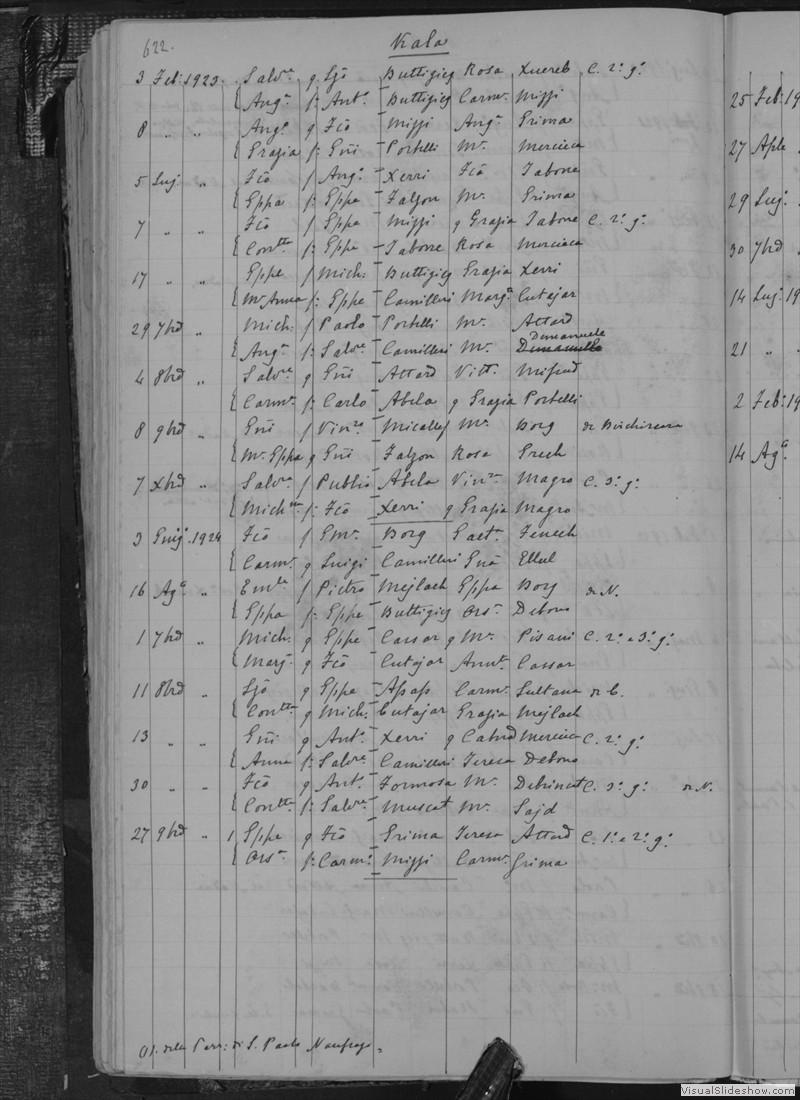 622.
Kala
3 Feb: 1923. Salv.re q Ljō Buttigieg Rosa Xuereb C. 2º gº
Ang.a f: Ant.o Buttigieg Carm.a Mizzi
8 " " Ang.o q Fcō Mizzi Ang.a Grima
Grazia f: Gñi Portelli M.a Mercieca
5 Lug. " Fcō f Ang.o Xerri Fcā Tabone
Gppa f: Gppe Falzon M.a Grima
7 " " Fcō f Gppe Mizzi q Grazia Tabone C. 2º gº
Con.tta f: Gppe Tabone Rosa Mercieca
17 " " Gppe f Mich: Buttigieg Grazia Xerri
M.a Anna f: Gppe Camilleri Marg.a Cutajar
29 7bre " Mich: f Paolo Portelli M.a Attard
Ang.a f: Salv.re Camilleri M.a Demanuele
4 8bre " Salv.re q Gñi Attard Vitt.a Mifsud
Carm.a f: Carlo Abela q Grazia Portelli
8 9bre " Gñi f Vin.zo Micallef M.a Borg
M.a Gppa q Gñi Falzon Rosa Grech
7 Xbre " Salv.re f Publio Abela Vin.za Magro C. 3º gº
Mich.na f: Fcō Xerri q Grazia Magro
3 Giug. 1924 Fcō f Em.le Borg Gaet.a Fenech
Carm.a q Luigi Camilleri Gñā Ellul
16 Ag.o " Em.le f Pietro Mejlach Gppa Borg di N.
Gppa f: Gppe Buttigieg Ors.a Debono
1 7bre " Mich: q Gppe Cassar q M.a Pisani C. 2º e 3º gº
Marj. q Fcō Cutajar Annt.a Cassar
11 8bre " Ljō q Gppe Apap Carm.a Sultana di C.
Con.tta q Mich: Cutajar Grazia Mejlach
13 " " Gñi q Ant.o Xerri q Cat.na Mercieca C. 2º gº
Anna f: Salv.re Camilleri Teresa Debono
30 " " Fcō q Ant.o Formosa M.a Debrincat C. 3º gº di N.
Con.tta f: Salv.re Muscat M.a Sajd
27 9bre " 1 Gppe q Fcō Grima Teresa Attard C. 1º e 2º gº
Ors.a f: Carm.o Mizzi Carm.a Grima
(1). della Parr: di S. Paolo Naufrago.
25 Feb: 19
27 Aple
29 Lug.
30 7bre
14 Lug. 19
21 " "
2 Feb: 19
14 Ag.o
VisualSlideshow.com